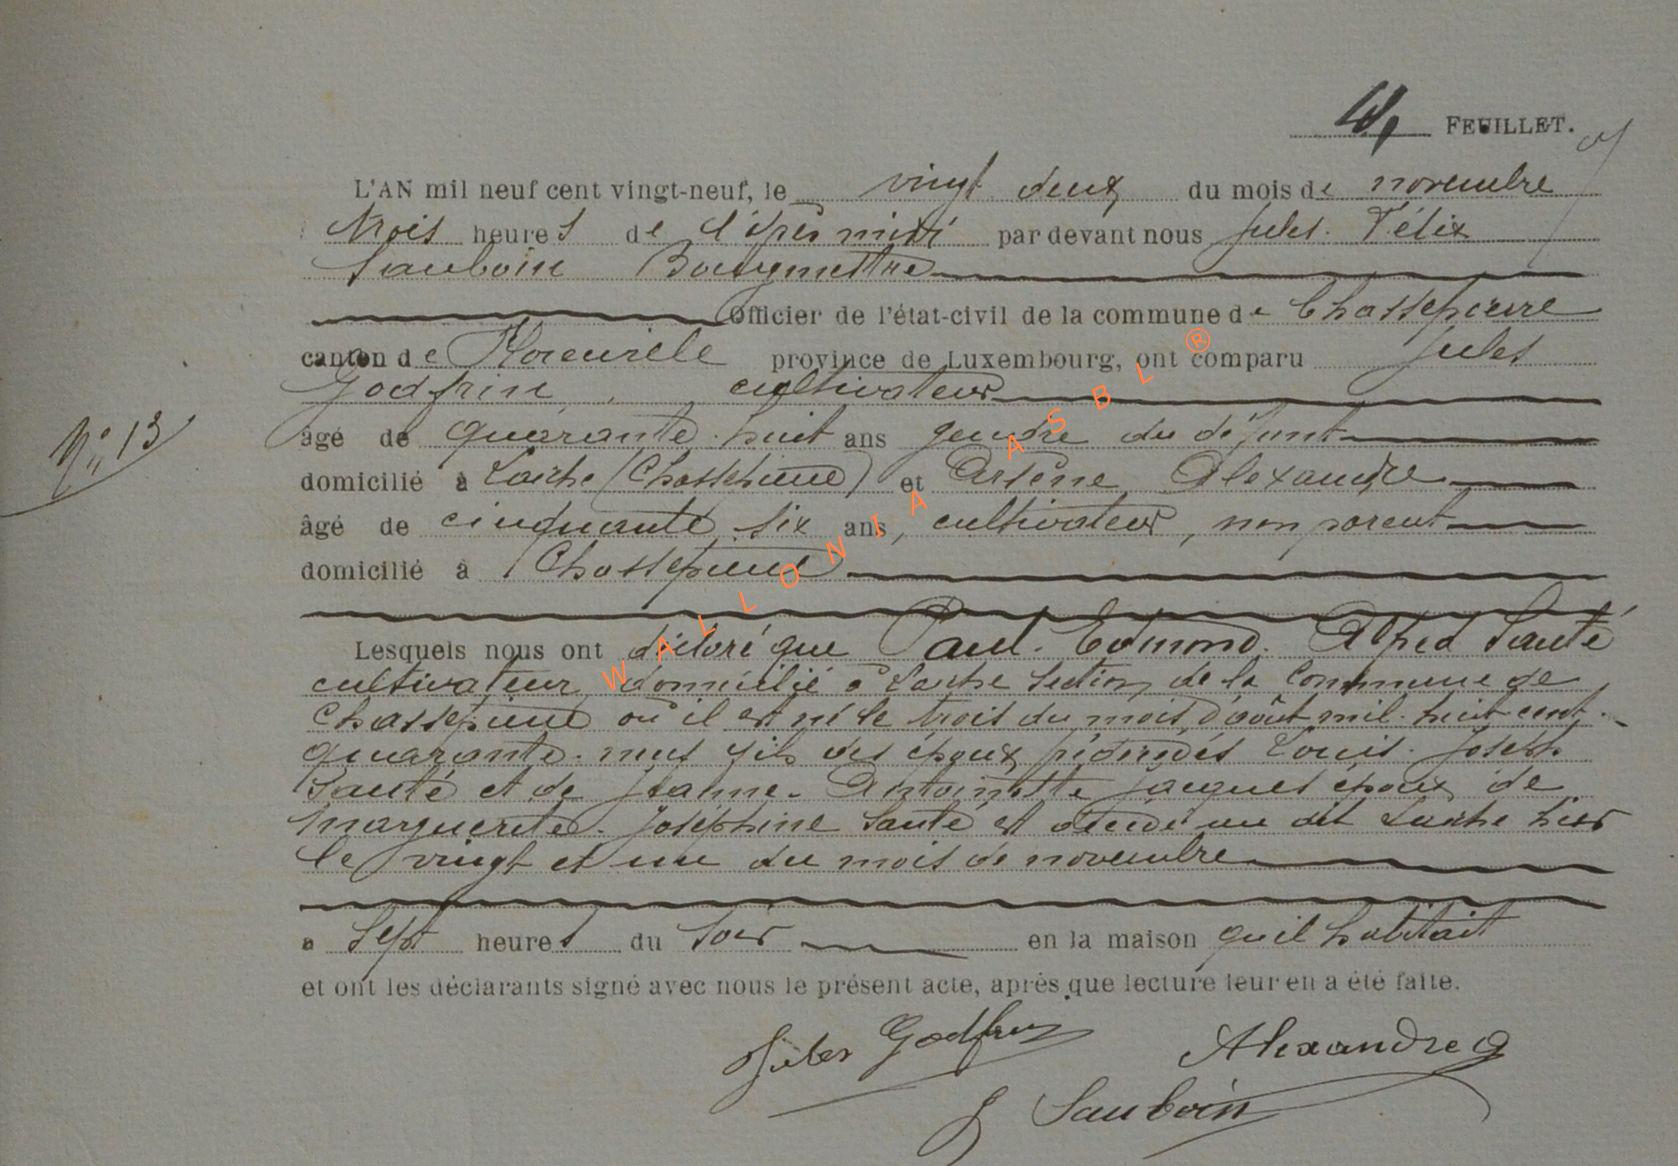 4, FEUILLET.
L'AN mil neuf cent vingt-neuf, le vingt deux du mois de novembre
trois heures de l'après midi par devant nous Jules. Félix
Sauboin Bourgmestre
Officier de l'état-civil de la commune de Chassepierre
canton de Florenville province de Luxembourg, ont comparu Jules
Godfrin, cultivateur
âgé de quarante. huit ans gendre du défunt
domicilié à Laiche (Chassepierre) et Arsène Alexandre
âgé de cinquante. six ans, cultivateur, non parent
domicilié à Chassepierre
Lesquels nous ont déclaré que Paul. Edmond. Alfred Santé
cultivateur domicilié à Laiche section de la commune de
Chassepierre où il est né le trois du mois d'août mil. huit cent.
quarante. neuf fils des époux prédécédés Louis. Joseph
Santé et de Jeanne. Antoinette Jacques époux de
Marguerite. Joséphine Santé est décédé au dit Laiche hier
le vingt et un du mois de novembre
a sept heures du soir en la maison qu'il habitait
et ont les déclarants signé avec nous le présent acte, après que lecture leur en a été faite.
Jules Godfrin Alexandre a
J Sauboin
N° 13
WALLONIA ASBL ®